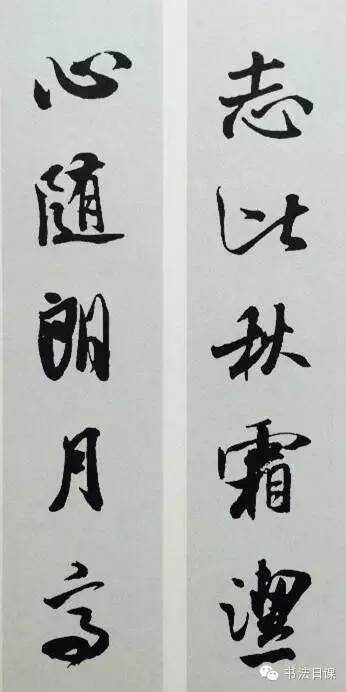 志比秋霜潔
心随朗月高
书法日课